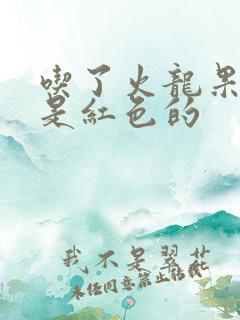 喫了火龍果
是紅色的
我不是翠花
未经同意禁止转载